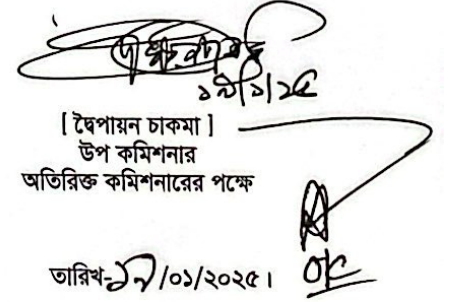 ১৯/১/২৫
[ দ্বৈপায়ন চাকমা ]
উপ কমিশনার
অতিরিক্ত কমিশনারের পক্ষে
তারিখ-১৯/০১/২০২৫।